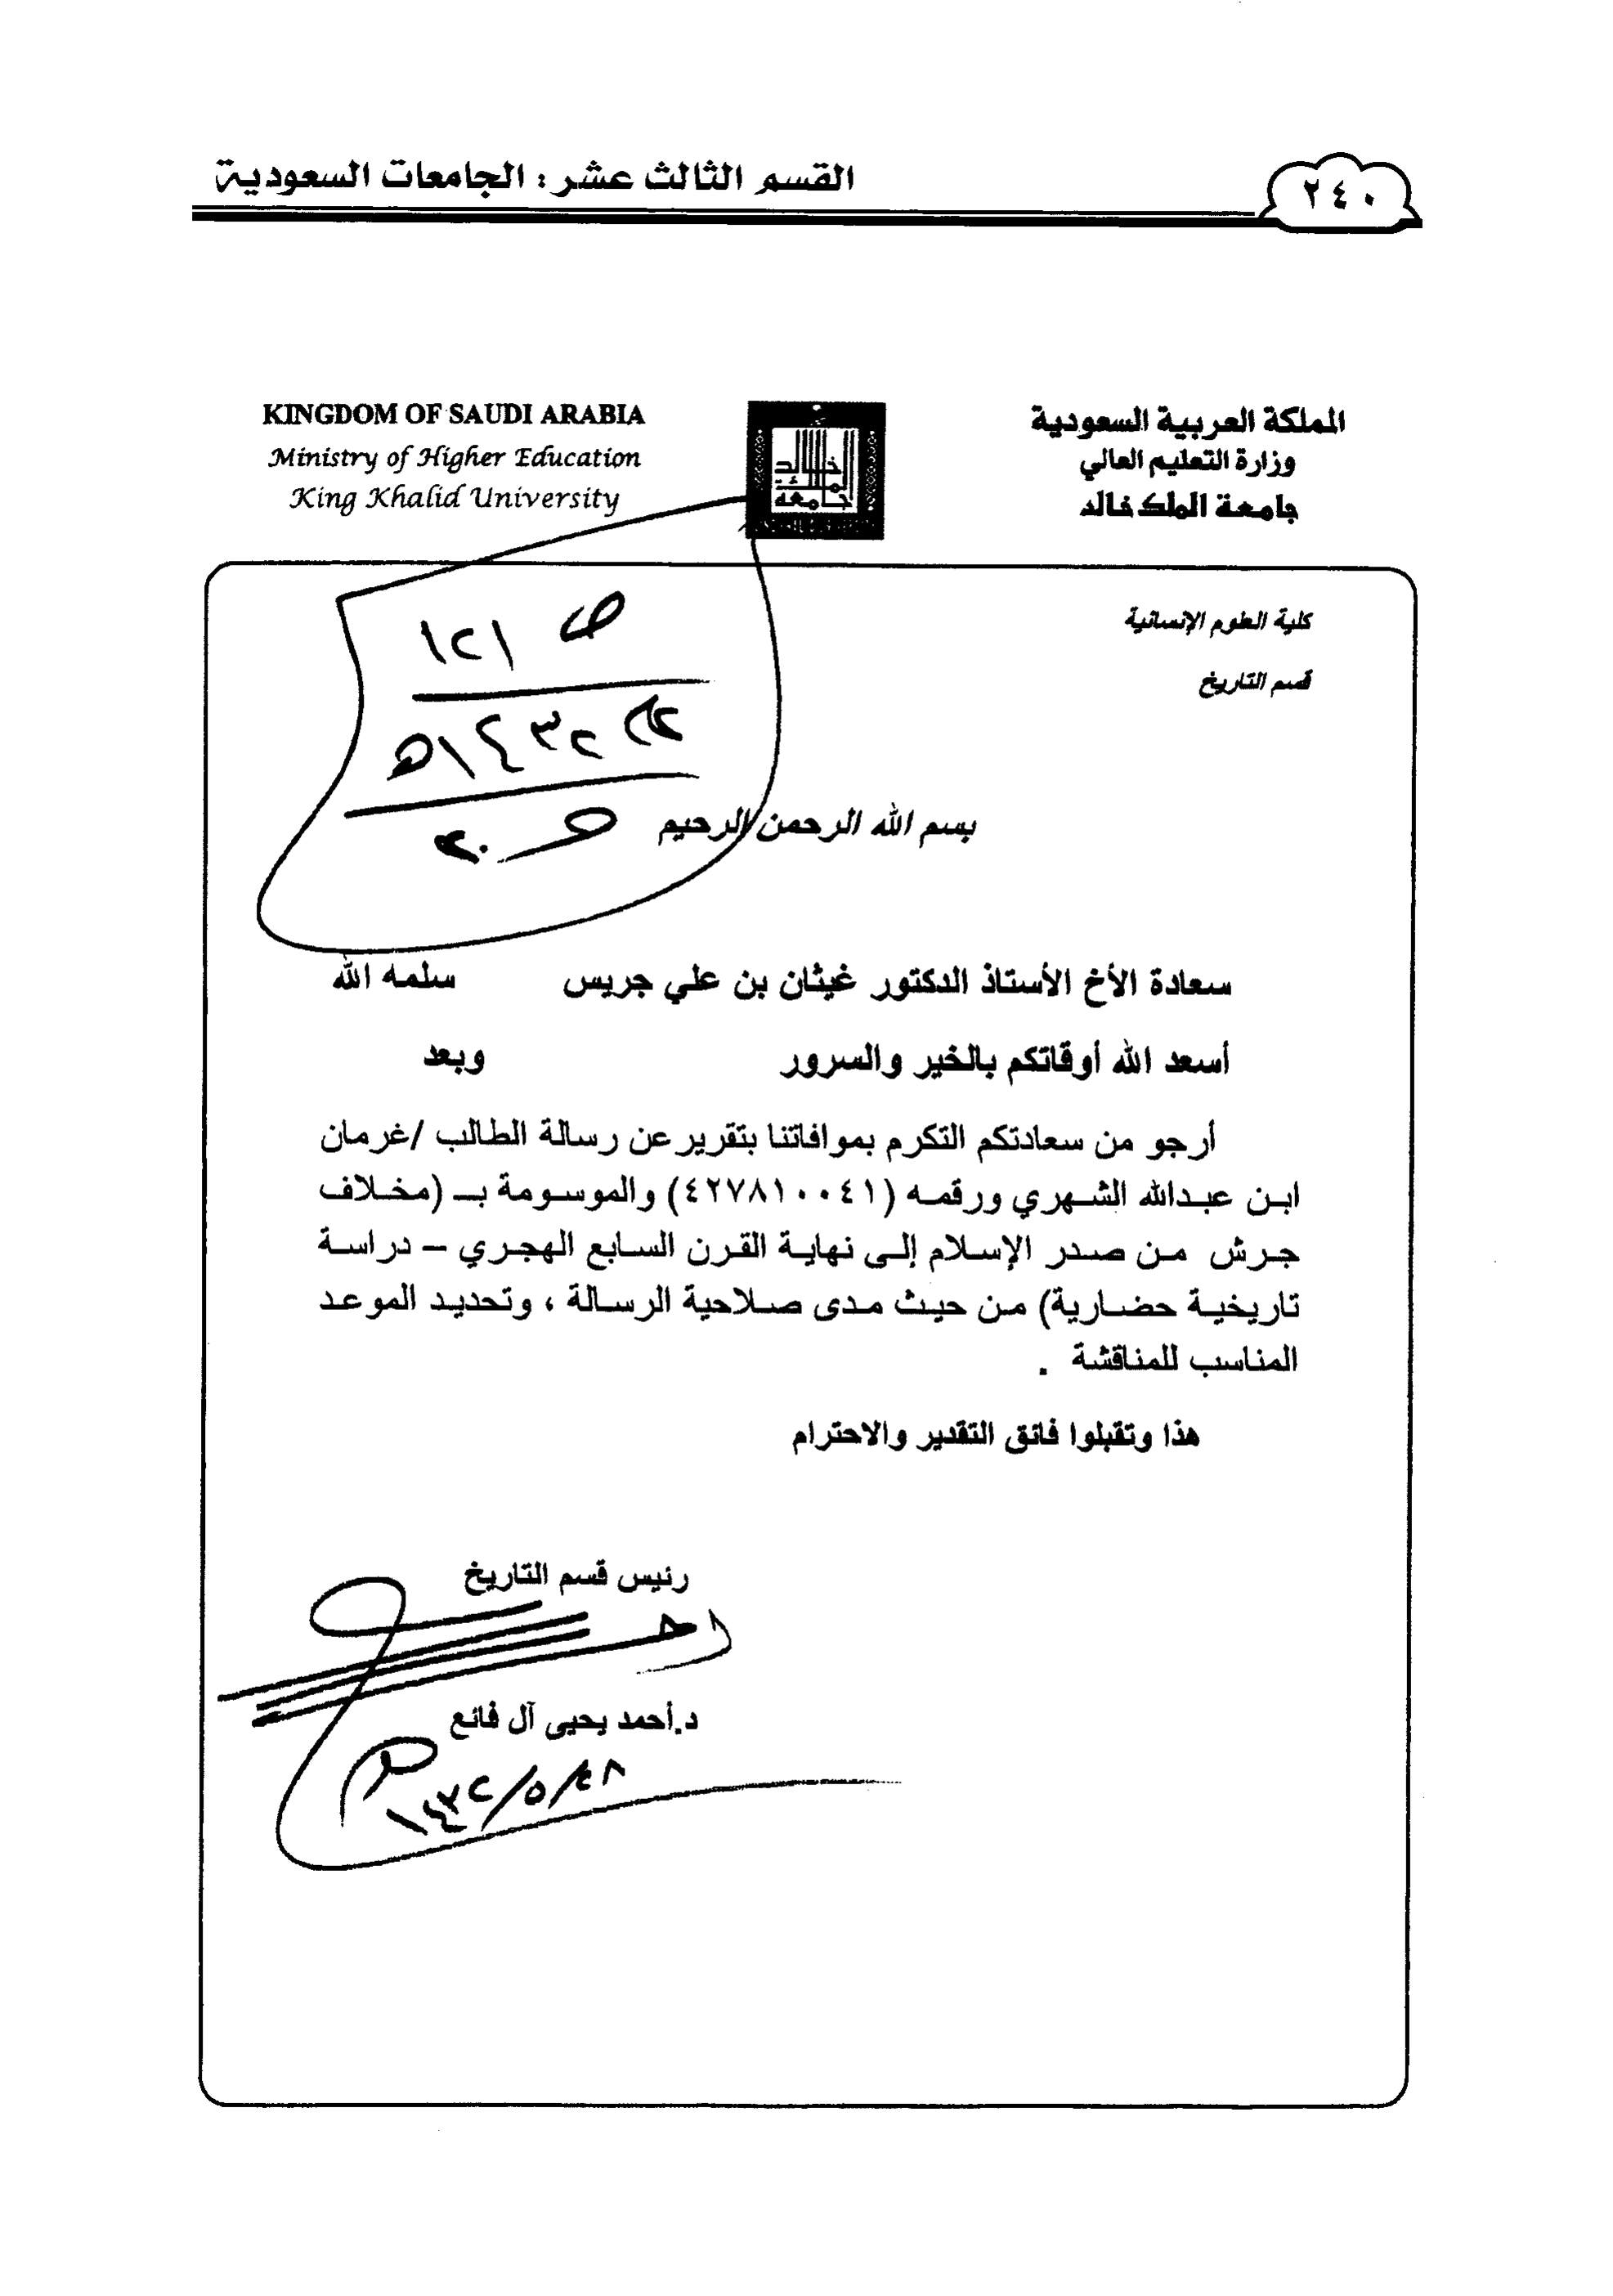 ٢٤٠
القسم الثالث عشر : الجامعات السعودية
المملكة العربية السعودية
وزارة التعليم العالي
جامعة الملك خالد
KINGDOM OF SAUDI ARABIA
Ministry of Higher Education
King Khalid University
جامعة الملك خالد
كلية العلوم الإنسانية
قسم التاريخ
ص ١٢١
١٤٣٢هـ
بسم الله الرحمن الرحيم
سعادة الأخ الأستاذ الدكتور غيثان بن علي جريس سلمه الله
أسعد الله أوقاتكم بالخير والسرور وبعد
أرجو من سعادتكم التكرم بموافاتنا بتقرير عن رسالة الطالب /غرمان
ابن عبدالله الشهري ورقمه (٤٢٧٨١٠٠٤١) والموسومة بـ (مخلاف
جرش من صدر الإسلام إلى نهاية القرن السابع الهجري – دراسة
تاريخية حضارية) من حيث مدى صلاحية الرسالة ، وتحديد الموعد
المناسب للمناقشة .
هذا وتقبلوا فائق التقدير والاحترام
رئيس قسم التاريخ
د.أحمد يحيى آل فائع